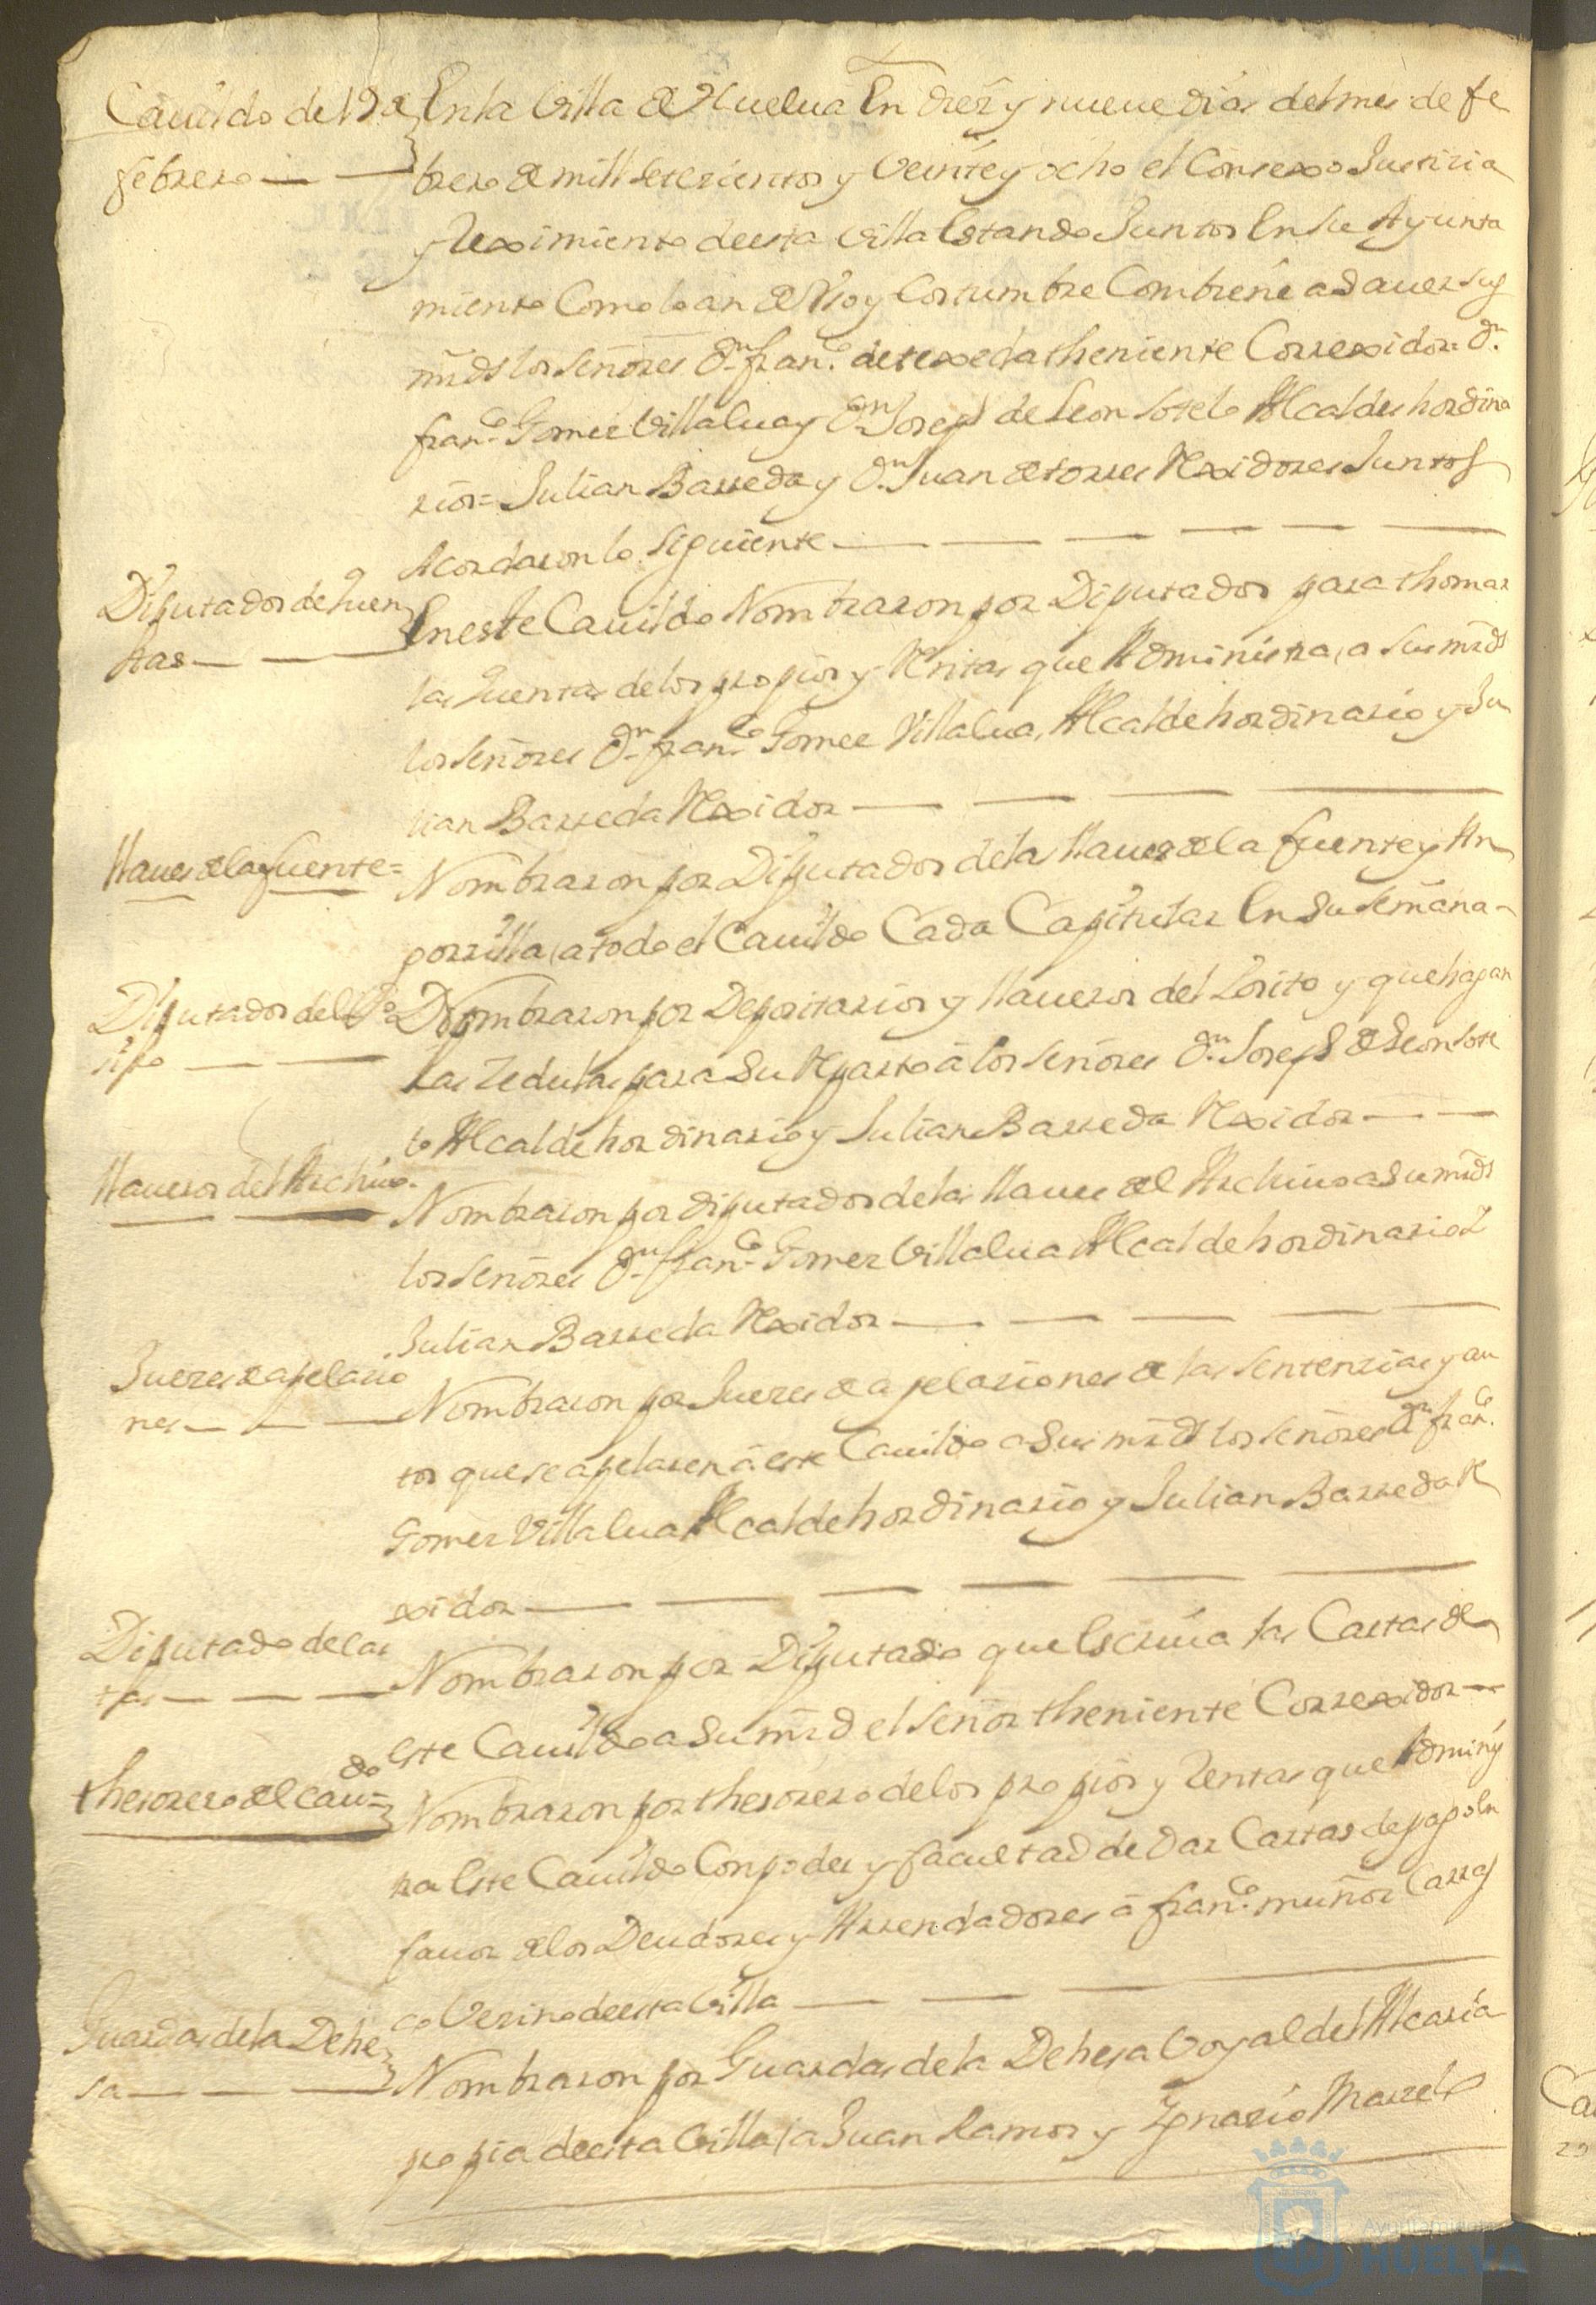 Cauildo de 19 de
febrero
En la Villa de Huelua En diez y nueue dias del mes de fe
brero de mill setezientos y Veinte y ocho el Consexo Justizia
y Reximiento desta Villa Estando Juntos En su Ayunta
miento Como lo an de Uso y Costumbre Combiene a sauer sus
mrds los señores Dn. franco. de texeda theniente Correxidor= Dn.
franco. Gomez Villalua y Dn. Joseph de Leon Sotelo Alcaldes hordina
rios= Julian Barreda y Dn. Juan de torres Rexidores Juntos
Acordaron lo siguiente
Diputados de quen
tas
En este Cauildo Nombraron por Diputados para thomar
las quentas de los propios y Rentas que Administra, a sus mrds
los señores Dn. franco. Gomez Villalua, Alcalde hordinario y Ju
lian Barreda Rexidor
llaues de la fuente=
Nombraron por Diputados de las llaues de la fuente y An
gorrilla, a todo el Cauildo Cada Capitular En su semana
Diputados del Po
sito
Nombraron por Depositarios y llaueros del Posito y que hagan
las Zedulas para su Reparto à los señores Dn. Joseph de Leon Sote
lo Alcalde hordinario y Julian Barreda Rexidor
llaueros del Archiuo.
Nombraron por diputados de las llaues del Archiuo a sus mrds
los señores Dn. franco. Gomez Villalua Alcalde hordinario Y
Julian Barreda Rexidor
Juezes de apelazio
nes
Nombraron por Juezes de apelaziones de las sentenzias y au
tos que se apelasen à este Cauildo a sus mrds los señores Dn. franco.
Gomez Villalua Alcalde hordinario y Julian Barreda Re
xidor
Diputado de car
tas
Nombraron por Diputado que Escriua las Cartas de
Este Cauildo a su mrd el señor theniente Correxidor
thesorero del cauildo
Nombraron por thesorero de los propios y Rentas que Adminis
tra Este Cauildo Con poder y facultad de dar Cartas de pago En
fauor de los Deudores y Arrendadores à franco. muñoz Carras
co Vezino desta Villa
Guardas de la Dehe
sa
Nombraron por Guardas de la Dehesa boyal del Alcaria
propia desta Villa, a Juan Ramos y Ygnazio Marzelo
Ayuntamiento
HUELVA